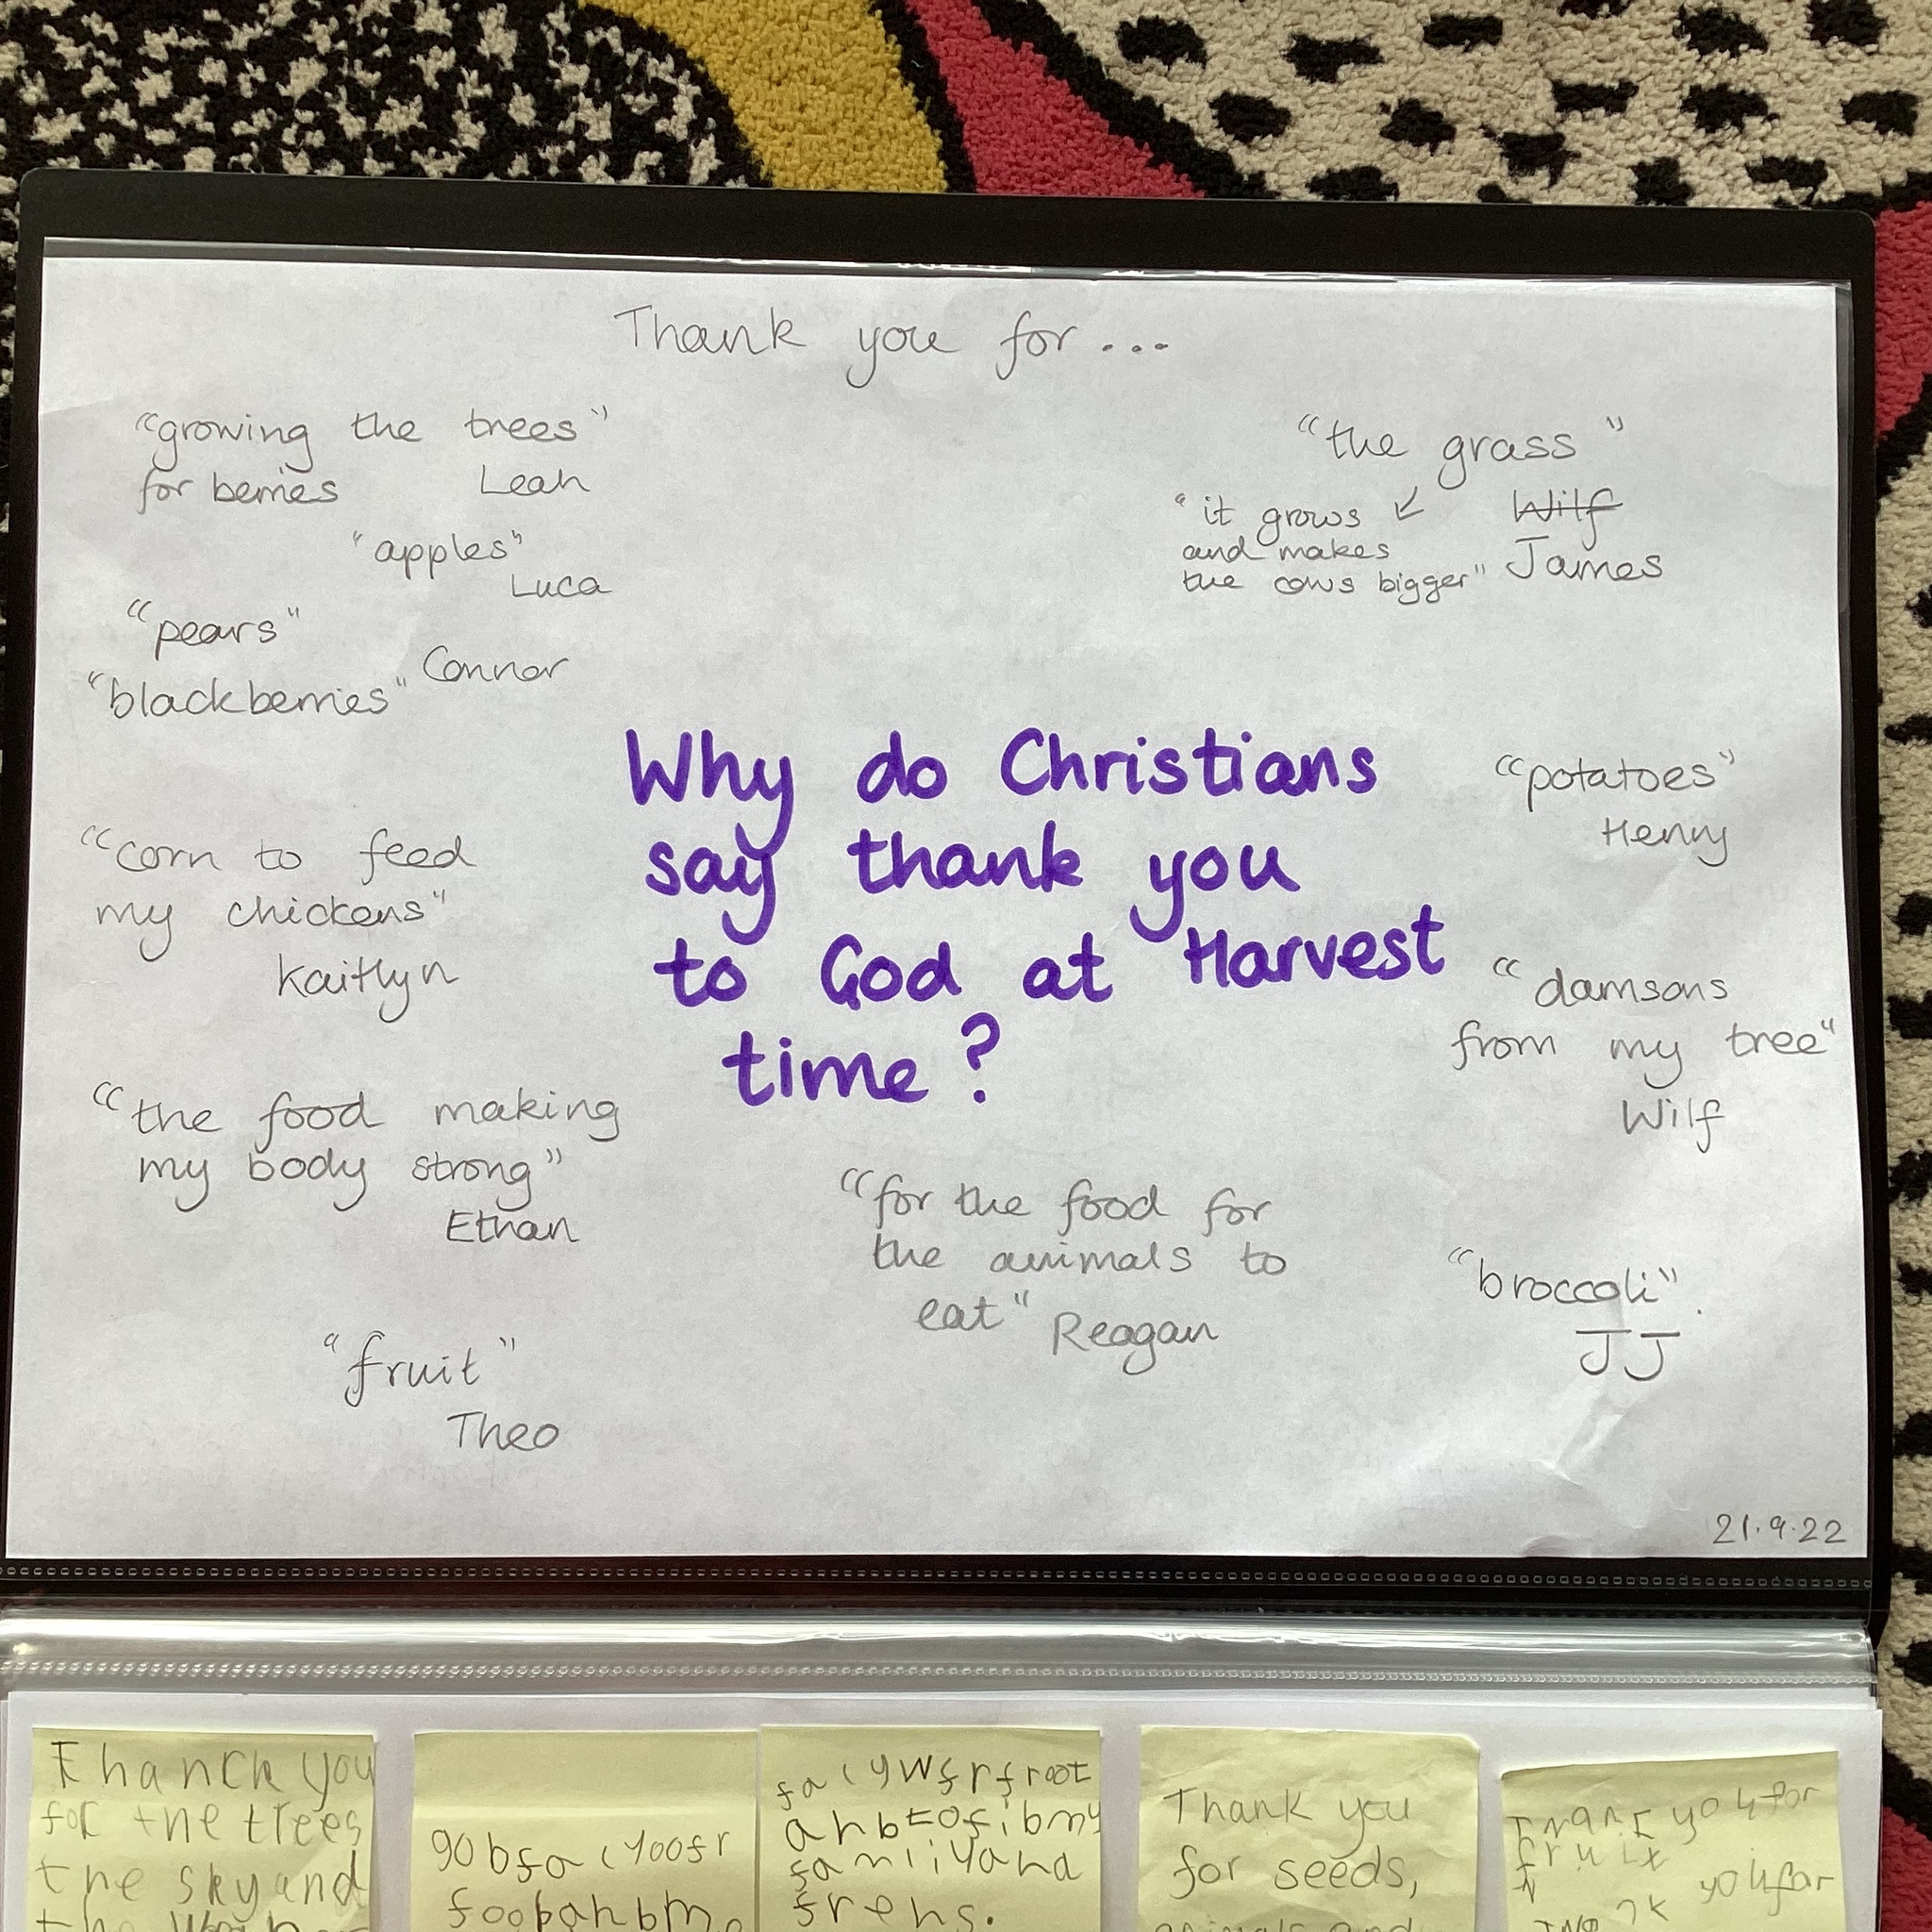 Thank you for...
"growing the trees"
for berries Leah
"apples"
Luca
"pears"
Connor
"blackberries"
"the grass"
"it grows ↙ Wilf
and makes
the cows bigger" James
Why do Christians
say thank you
to God at Harvest
time?
"corn to feed
my chickens"
Kaitlyn
"potatoes"
Henry
"damsons
from my tree"
Wilf
"the food making
my body strong"
Ethan
"for the food for
the animals to
eat" Reagan
"broccoli".
JJ
"fruit"
Theo
21.9.22
Thanck you
for the trees
the sky and
the
gobfa
foob
frfroot
frens.
Thank you
for seeds,
animals and
you for
fruit